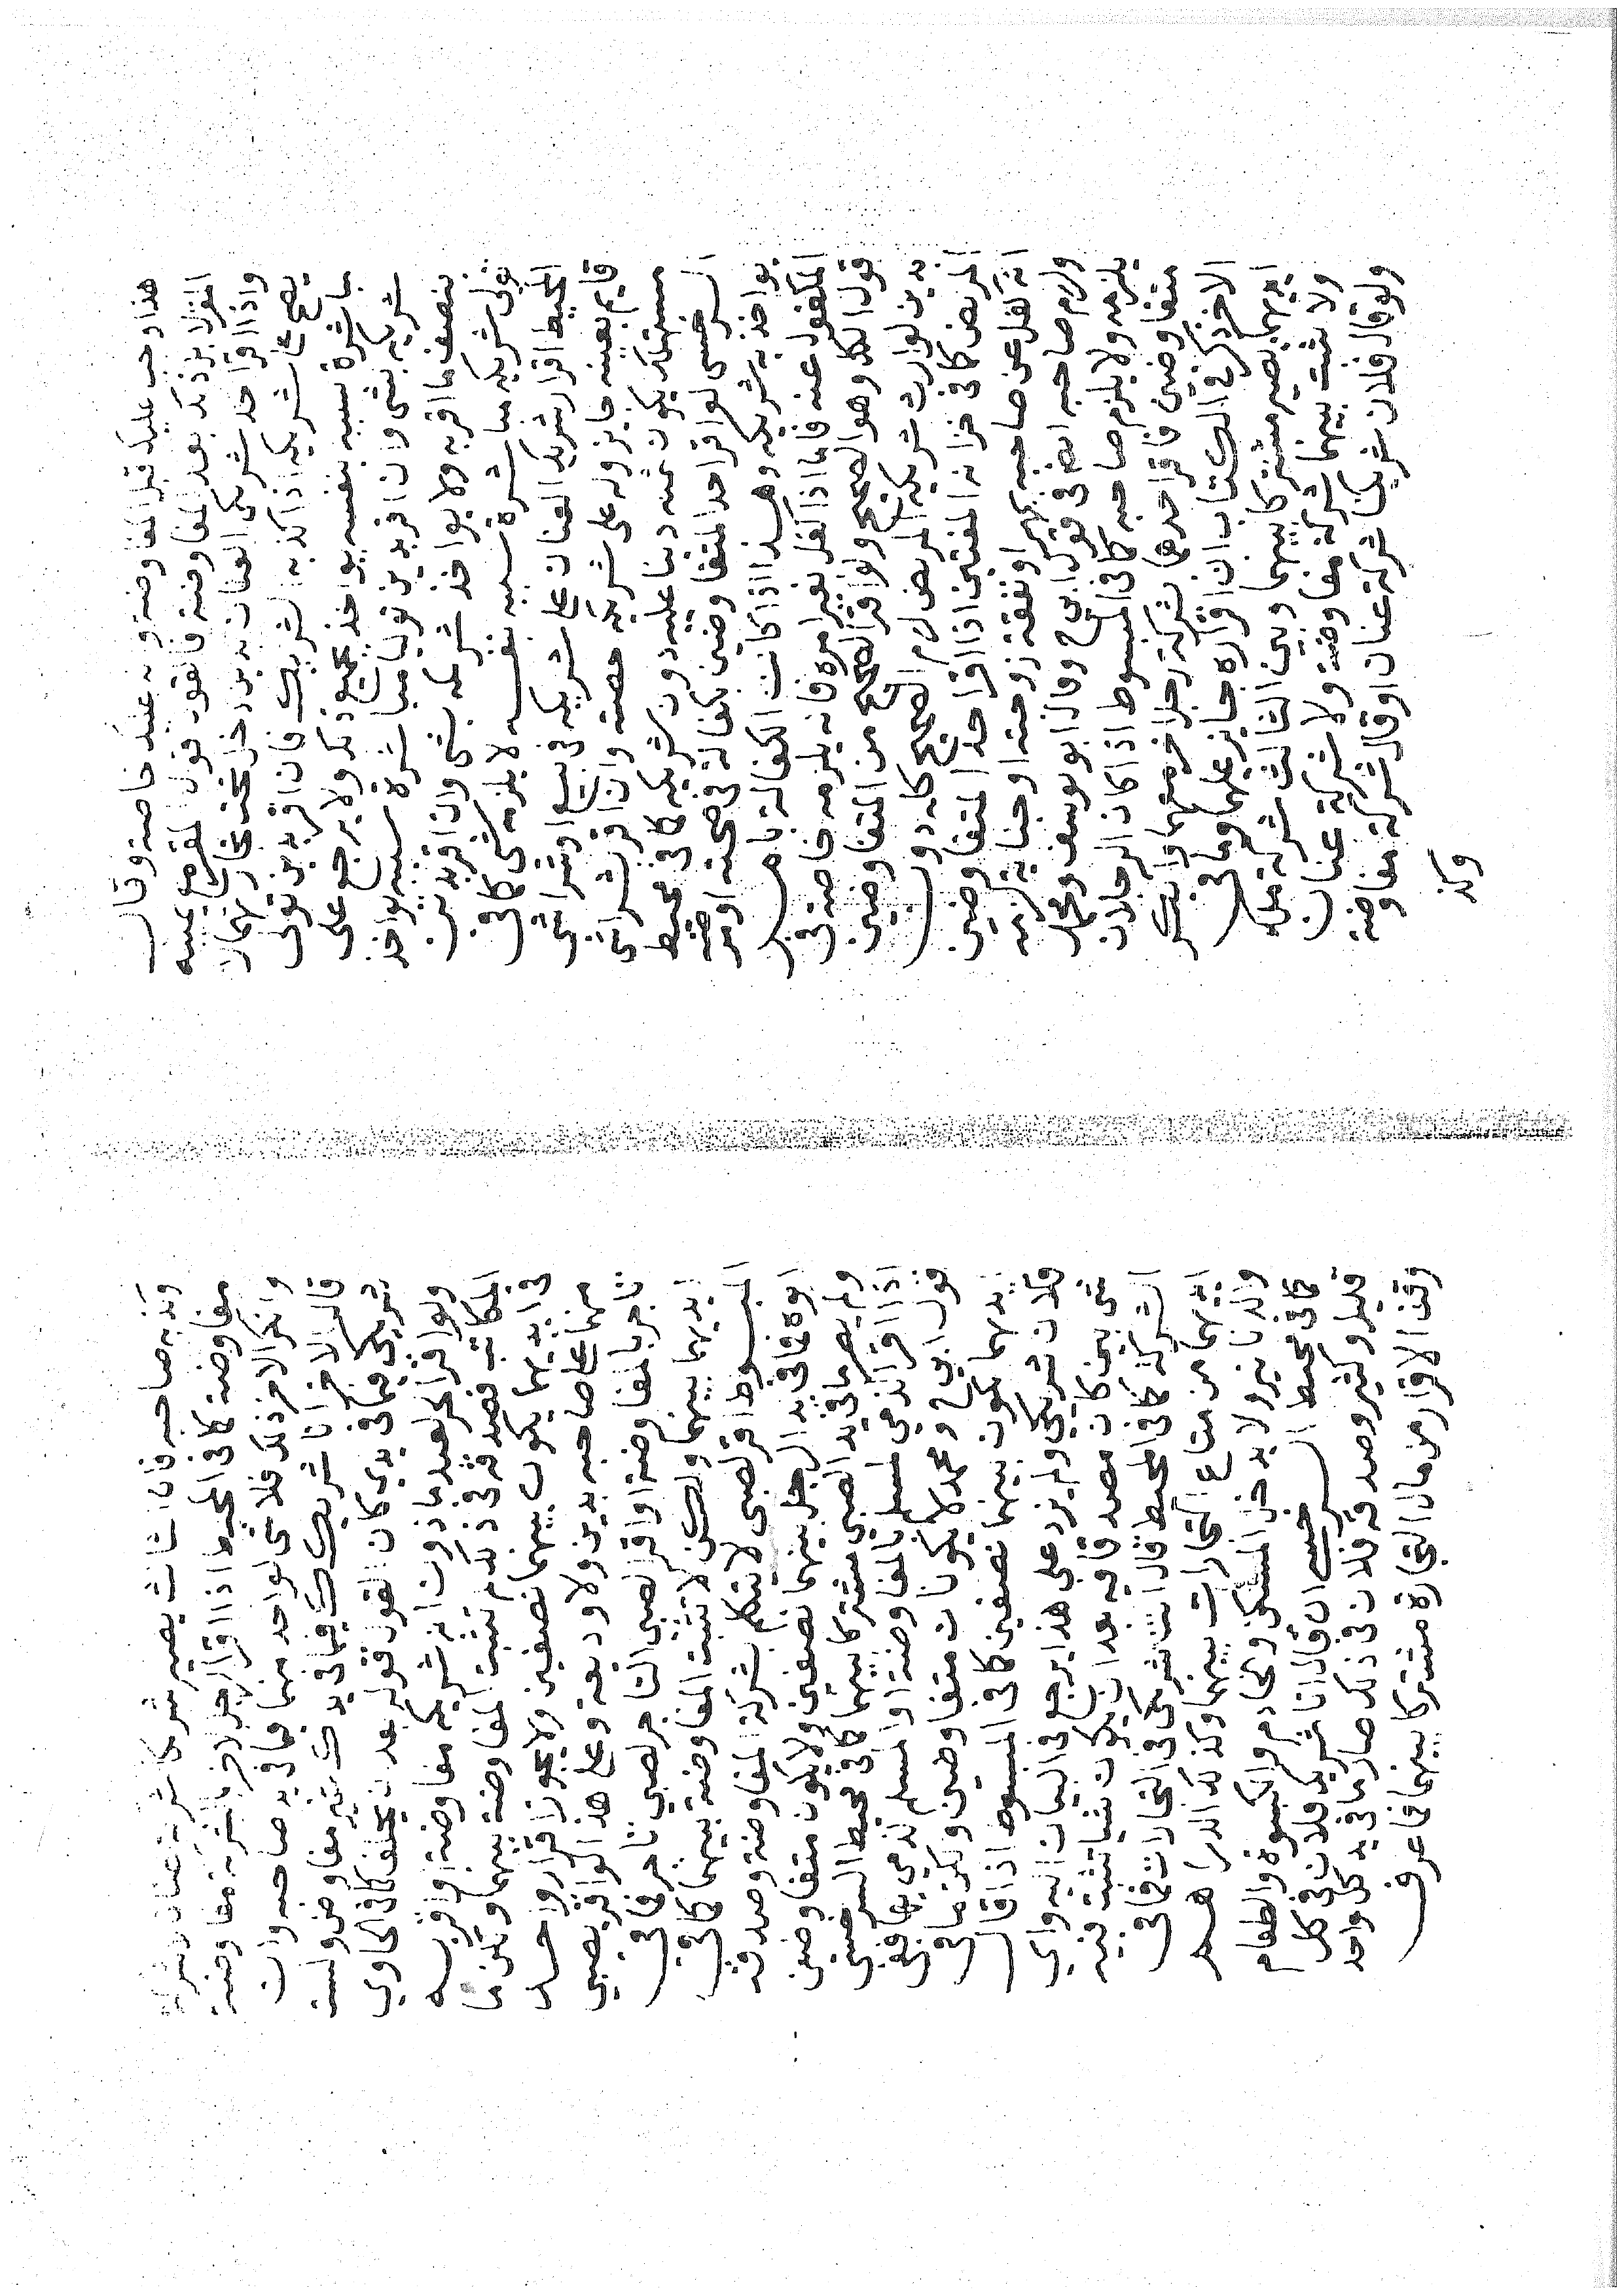 هذا وجب عليك قبل المفاوضة وبه عليك خاصة وقال
المقر لا بل ذلك بعد المفاوضة فالقول قول المقر مع يمينه
واذا اقر احد شريكي العنان بدين دخل تحت تجارتهما لا
يصح على شريكه اذا كذبه الشريك فان اقر بدين تولى
مباشرة سببه بنفسه يواخذ بجميع ذلك ولا يرجع على
شريكه بشي وان اقر بدين توليا مباشرة سببه يواخذ
بنصف ما اقر به ولا يواخذ شريكه بشي وان اقر بدين
تولى شريكه مباشرة سببه بنفسه لا يلزمه شي كما في
المحيط اقرار شريك العنان على شريكه في بيع او شرا شي
قايم بعينه جايز وله على شريكه حصته وان اقر بشرا شي
مستهلك يكون ثمنه دينا عليه دون شريكه كما في محيط
السرخسي لو اقر احد المتفاوضين بكفالة في صحته او مرضه
يواخذ به شريكه وهذا اذا كانت الكفالة بامر
المكفول عنه فاما اذا كفل بغير امره فانه يلزمه خاصة في
قول الكل وهو الصحيح ولو اقر الصحيح من المتفاوضين
بدين لوارث شريكه المريض لزم الصحيح كله دون
المريض كما في خزانة المفتين اذا اقر احد المتفاوضين
انه كفل عن صاحبه بمهر او نفقة زوجته او جناية لزمه
ولزم صاحبه ايضا في قول ابي ح وقال ابو يوسف ومحمد
يلزمه ولا يلزم صاحبه كما في المبسوط اذا كان الرجلان
متفاوضين فاقر احدهما بشركة رجل اخر معهما وانكر
الاخر ذكر في الكتاب ان اقراره جايز عليهما وما في
ايديهما يصير مشتركا بينهما وبين الثالث شركة ملك
ولا تثبت بينهما شركة مفاوضة ولا شركة عنان
ولو قال فلان شريكنا شركة عنان او قال شركة مفاوضة
وكذ
وكذبه صاحبه فان الثالث يصير شريكا شركة عنان لا شركة
مفاوضة كما في المحيط اذا اقر الرجل لاخر بالشركة مفاوضة
وانكر الاخر ذلك فلا شي لواحد منهما فيما في يد صاحبه وان
قال الاخر انا شريكك فيما في يدك غير مفاوض ولست
شريكي فيما في يدي كان القول قوله بعد ان يحلف كما في الحاوي
ولو اقر الحر لعبد ماذون انه شريكه مفاوضة او اقر به
لمكاتب فصدقه في ذلك لم تثبت المفاوضة بينهما ولكن ما
في ايديهما يكون بينهما نصفين ولا يجوز اقرار واحد
منهما على صاحبه بدين ولا وديعة وعلى هذا لو اقر لصبي
تاجر بالمفاوضة او اقر الصبي التاجر لصبي تاجر فما في
ايديهما بينهما ولكن لا تثبت المفاوضة بينهما كما في
المبسوط اقر لصبي لا يتكلم بشركة المفاوضة وصدقه
ابوه فما في يد الرجل بينهما نصفين ولا يكون متفاوضين
ولم يصر ما في يد الصبي مشتركا بينهما كما في محيط السرخسي
اذا اقر الذمي لمسلم بالمفاوضة او المسلم لذمي بها ففي
قول ابي ح ومحمد لا يكونان متفاوضين ولكن ما في
يديهما يكون بينهما نصفين كما في المبسوط اذا قال
فلان شريكي ولم يزد على هذا يرجع في البيان اليه واي
شي بين كان مصدقا فيه بعد ان يكون شيا تثبت فيه
الشركة كما في المحيط قال انت شريكي في التجارات فما في
ايديهما من متاع التجارات بينهما وكذلك الدراهم
والدنانير ولا يدخل المسكن والخادم والكسوة والطعام
كما في محيط السرخسي ان قال انا شريك فلان في كل
قليل وكثير وصدقه فلان في ذلك صار ما في يد كل واحد
وقت الاقرار من مال التجارة مشتركا بينهما فاعرف